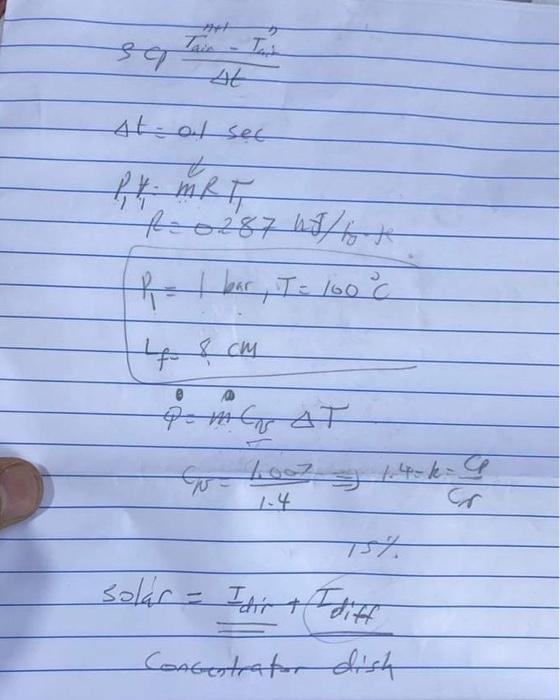 ρ cp (T_air^n+1 - T_air^n) / Δt
Δt = 0.1 sec
P₁V₁ = mRT₁
R = 0.287 kJ/kg-K
P₁ = 1 bar, T = 100°C
L_f = 8 cm
Q̇ = ṁ Cᵥ ΔT
Cᵥ = 1.007 / 1.4 ⇒ 1.4 = k = Cp / Cᵥ
15%
solar = I_dir + I_diff
Concentrator dish